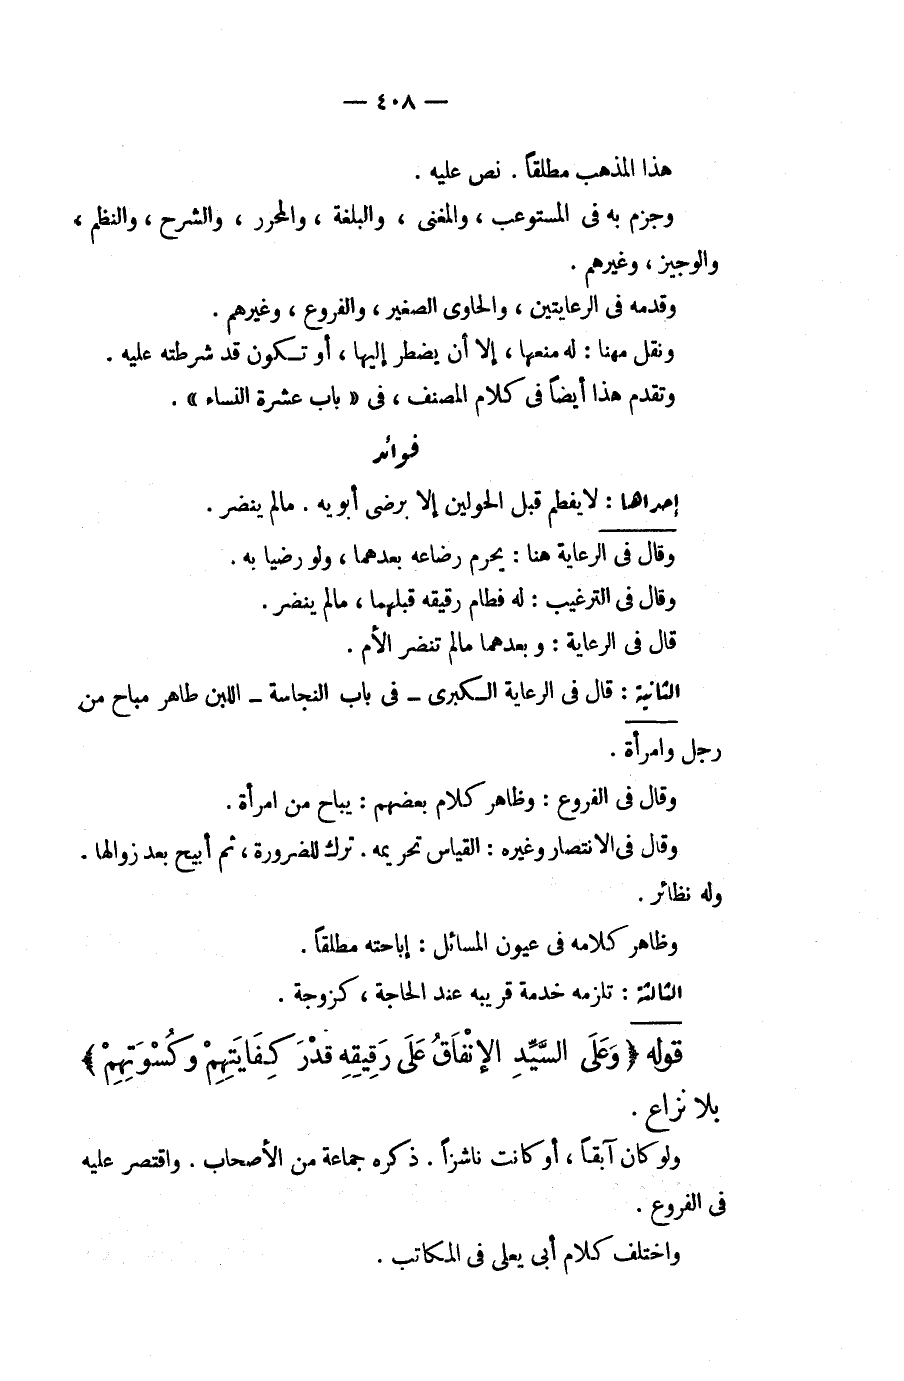 — ٤٠٨ —
هذا المذهب مطلقاً . نص عليه .
وجزم به فى المستوعب ، والمغنى ، والبلغة ، والمحرر ، والشرح ، والنظم ،
والوجيز ، وغيرهم .
وقدمه فى الرعايتين ، والحاوى الصغير ، والفروع ، وغيرهم .
ونقل مهنا : له منعها ، إلا أن يضطر إليها ، أو تكون قد شرطته عليه .
وتقدم هذا أيضاً فى كلام المصنف ، فى « باب عشرة النساء » .
فوائد
إحداها : لا يفطم قبل الحولين إلا برضى أبويه . مالم ينضر .
وقال فى الرعاية هنا : يحرم رضاعه بعدهما ، ولو رضيا به .
وقال فى الترغيب : له فطام رقيقه قبلهما ، مالم ينضر .
قال فى الرعاية : وبعدهما مالم تنضر الأم .
الثانية : قال فى الرعاية الكبرى ـ فى باب النجاسة ـ اللبن طاهر مباح من
رجل وامرأة .
وقال فى الفروع : وظاهر كلام بعضهم : يباح من امرأة .
وقال فى الانتصار وغيره : القياس تحريمه . ترك للضرورة ، ثم أبيح بعد زوالها .
وله نظائر .
وظاهر كلامه فى عيون المسائل : إباحته مطلقاً .
الثالثة : تلزمه خدمة قريبه عند الحاجة ، كزوجة .
قوله ﴿ وَعَلَى السَّيِّدِ الإِنْفَاقُ عَلَى رَقِيقِهِ قدْرَ كِفَايَتِهِمْ وكُسْوَتِهِمْ ﴾
بلا نزاع .
ولو كان آبقاً ، أو كانت ناشزاً . ذكره جماعة من الأصحاب . واقتصر عليه
فى الفروع .
واختلف كلام أبى يعلى فى المكاتب .